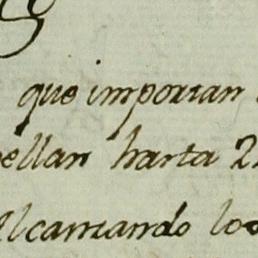 que importan
ellan hasta 2
Alcanzando los